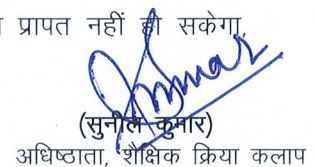 प्रापत नहीं हो सकेगा,
(सुनील कुमार)
अधिष्ठाता, शैक्षिक क्रिया कलाप